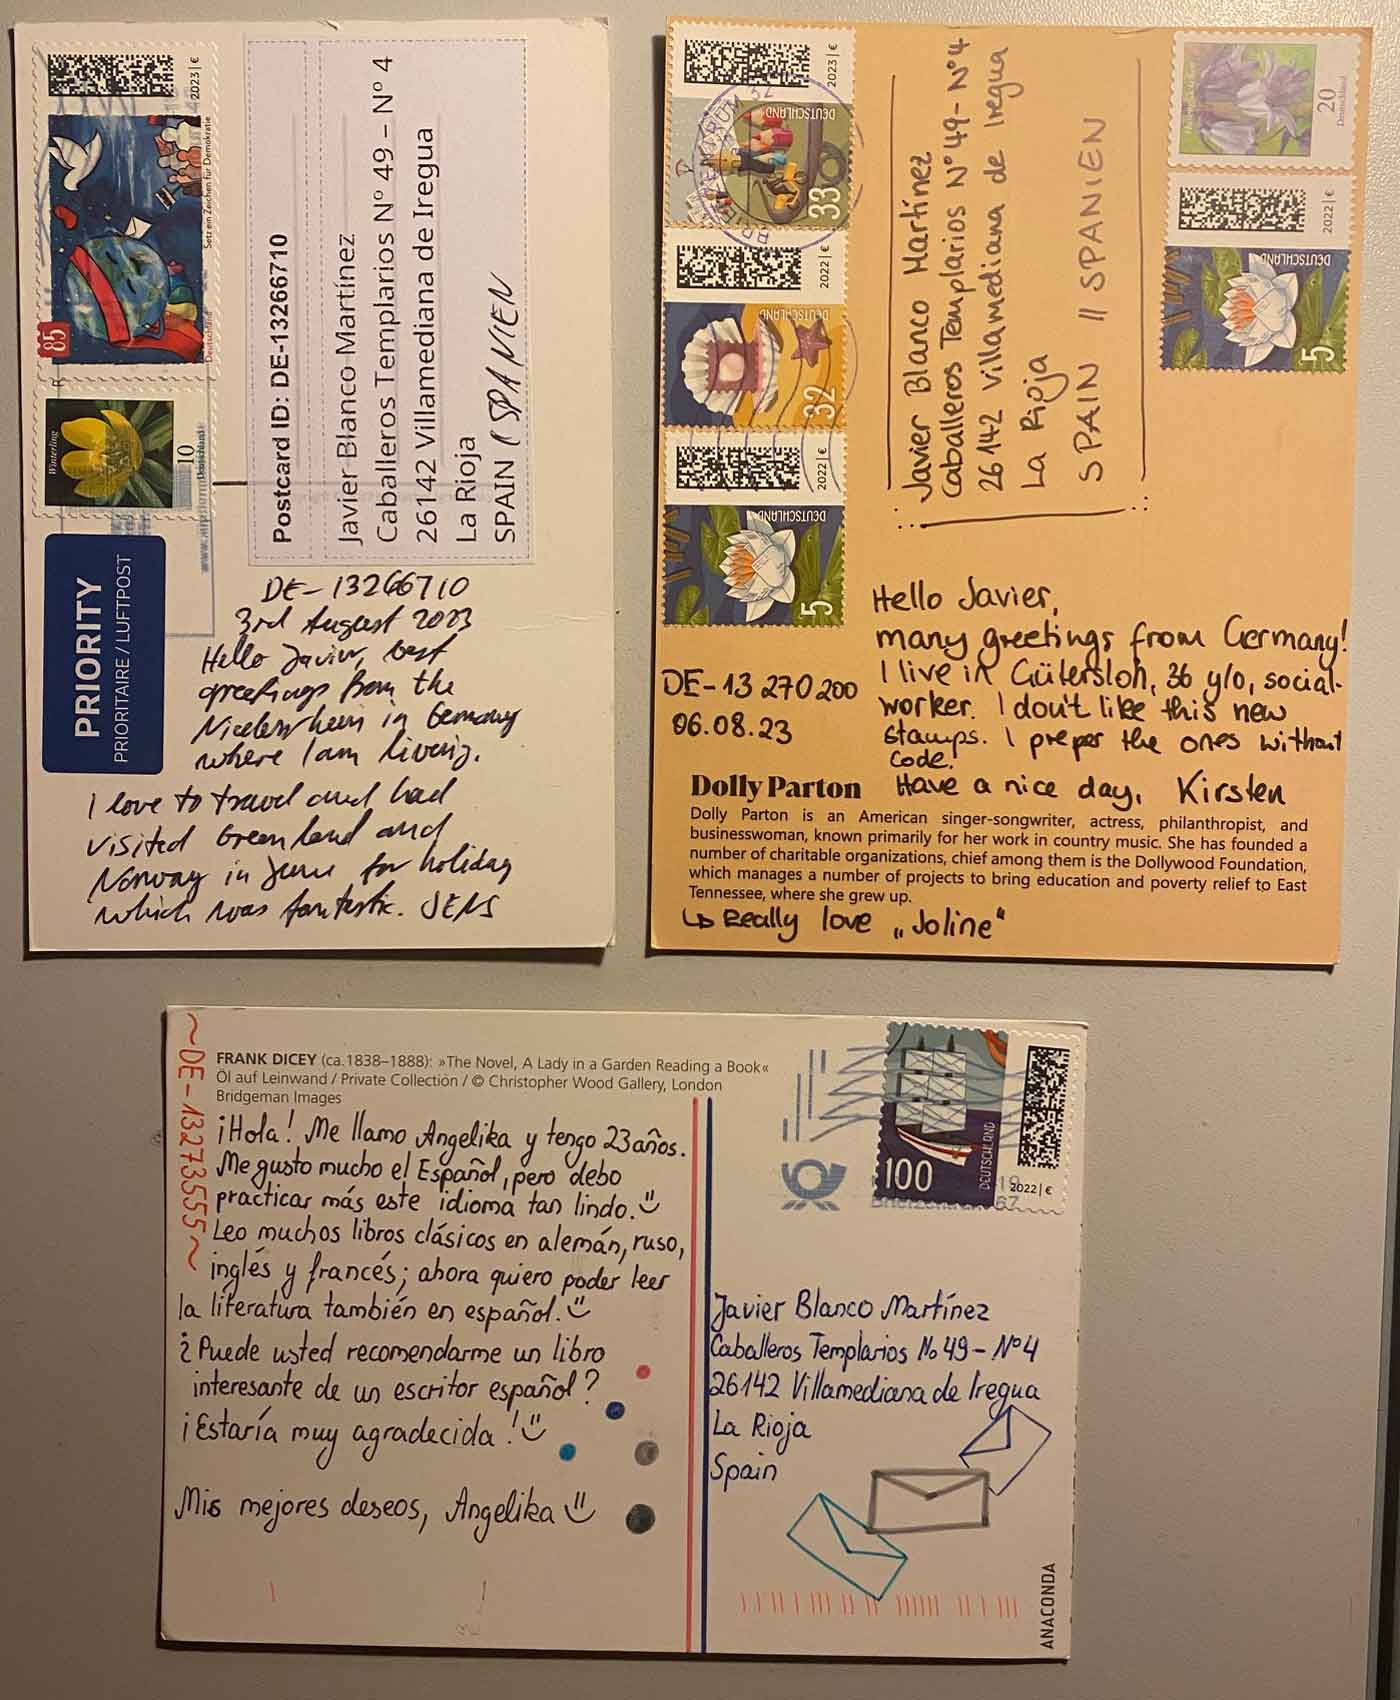 2023 | €
Setz ein Zeichen für Demokratie
85
Deutschland
Winterling
10
Deutschland
PRIORITY
PRIORITAIRE / LUFTPOST
Postcard ID: DE-13266710
Javier Blanco Martínez
Caballeros Templarios Nº 49 – Nº 4
26142 Villamediana de Iregua
La Rioja
SPAIN (SPANIEN
DE-13266710
3rd August 2023
Hello Javier, best
greetings from the
Niederrhein in Germany
where I am living.
I love to travel and had
visited Greenland and
Norway in June for holiday
which was fantastic. JENS
2023 | €
DEUTSCHLAND
33
2022 | €
DEUTSCHLAND
32
2022 | €
DEUTSCHLAND
5
20
Deutschland
2022 | €
DEUTSCHLAND
5
Javier Blanco Martínez
Caballeros Templarios Nº 49 - Nº 4
26142 Villamediana de Iregua
La Rioja
SPAIN // SPANIEN
DE-13 270 200
06.08.23
Hello Javier,
many greetings from Germany!
I live in Gütersloh, 36 y/o, social-
worker. I don't like this new
stamps. I preper the ones without
code.
Have a nice day, Kirsten
Dolly Parton
Dolly Parton is an American singer-songwriter, actress, philanthropist, and
businesswoman, known primarily for her work in country music. She has founded a
number of charitable organizations, chief among them is the Dollywood Foundation,
which manages a number of projects to bring education and poverty relief to East
Tennessee, where she grew up.
↳ Really love „Joline“
~DE-13273555~
FRANK DICEY (ca.1838–1888): »The Novel, A Lady in a Garden Reading a Book«
Öl auf Leinwand / Private Collection / © Christopher Wood Gallery, London
Bridgeman Images
¡Hola! Me llamo Angelika y tengo 23 años.
Me gusto mucho el Español, pero debo
practicar más este idioma tan lindo. :)
Leo muchos libros clásicos en alemán, ruso,
inglés y francés; ahora quiero poder leer
la literatura también en español. :)
¿Puede usted recomendarme un libro
interesante de un escritor español?
¡Estaría muy agradecida! :)
Mis mejores deseos, Angelika :)
100
DEUTSCHLAND
2022 | €
Javier Blanco Martínez
Caballeros Templarios No 49 – Nº4
26142 Villamediana de Iregua
La Rioja
Spain
ANACONDA